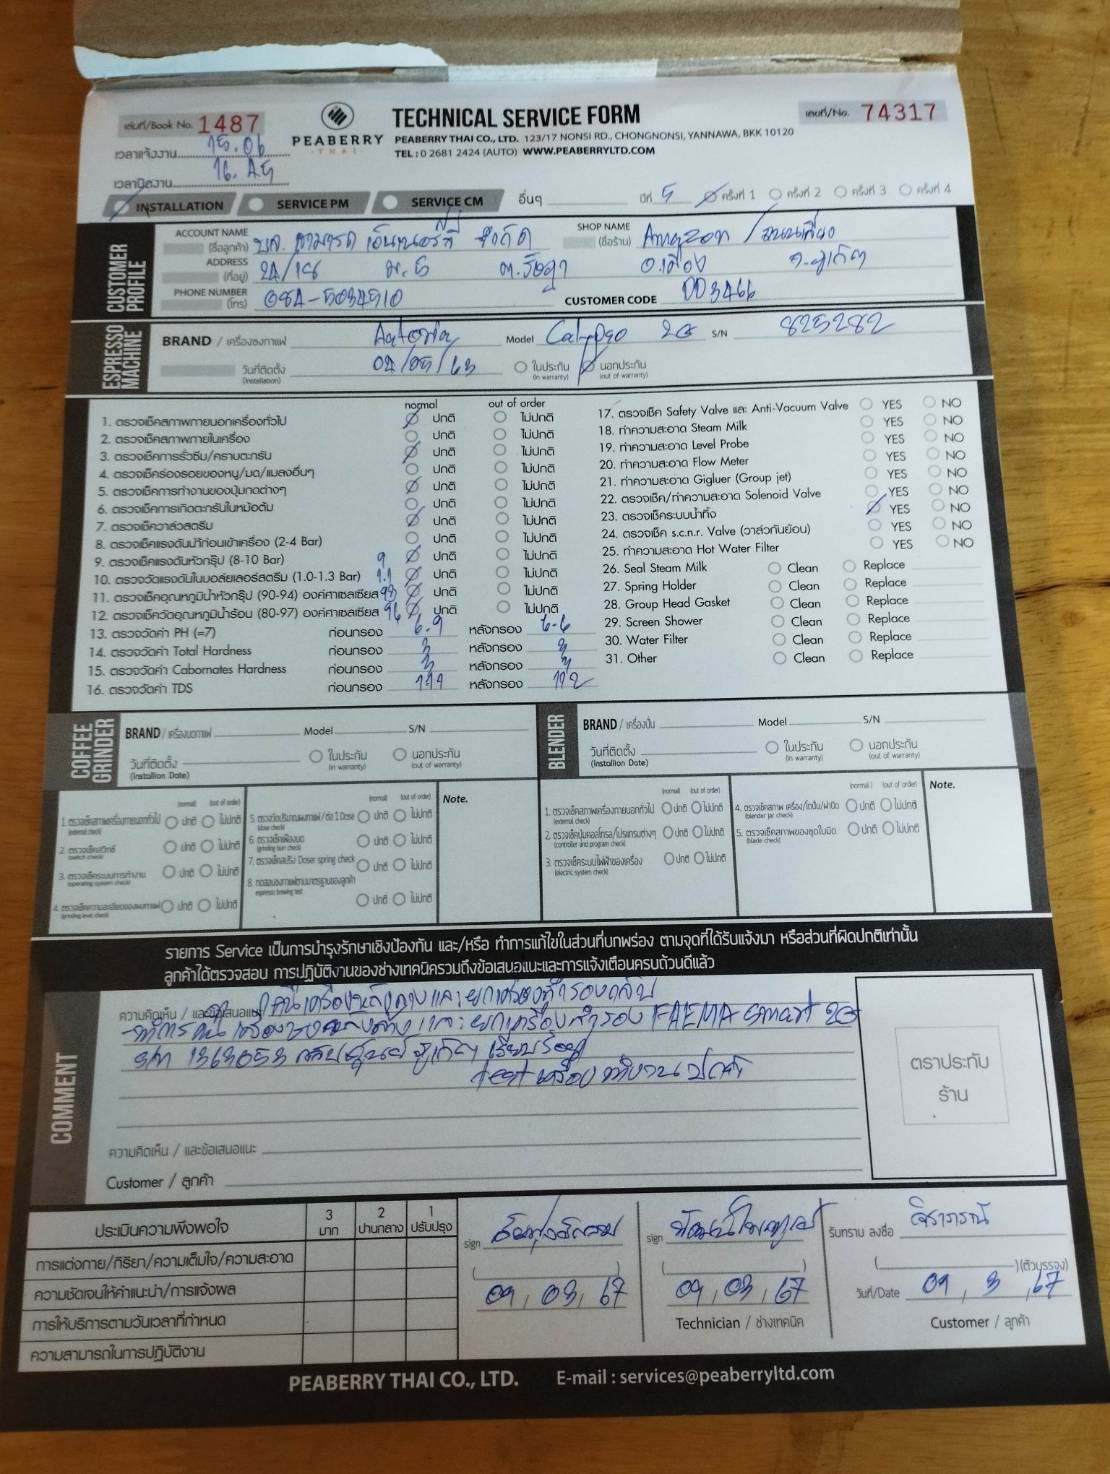 เล่มที่/Book No. 1487
PEABERRY
THAI
TECHNICAL SERVICE FORM
PEABERRY THAI CO., LTD. 123/17 NONSI RD., CHONGNONSI, YANNAWA, BKK 10120
TEL : 0 2681 2424 (AUTO) WWW.PEABERRYLTD.COM
เลขที่/No. 74317
เวลาแจ้งงาน 15.06
เวลาปิดงาน 16.45
INSTALLATION SERVICE PM SERVICE CM อื่นๆ ปีที่ 5 ครั้งที่ 1 ครั้งที่ 2 ครั้งที่ 3 ครั้งที่ 4
CUSTOMER PROFILE
ACCOUNT NAME (ชื่อลูกค้า) จำกัด SHOP NAME (ชื่อร้าน) Amazon /
ADDRESS (ที่อยู่) ม.5 ต.รัษฎา อ.เมือง จ.ภูเก็ต
PHONE NUMBER (โทร) 084-5034910 CUSTOMER CODE DD3466
ESPRESSO MACHINE
BRAND / เครื่องชงกาแฟ Astoria Model Calypso 2G S/N 825282
วันที่ติดตั้ง (Installation) 02/05/63 ในประกัน (in warranty) นอกประกัน (out of warranty)
normal out of order
1. ตรวจเช็คสภาพภายนอกเครื่องทั่วไป ปกติ ไม่ปกติ
2. ตรวจเช็คสภาพภายในเครื่อง ปกติ ไม่ปกติ
3. ตรวจเช็คการรั่วซึม/คราบตะกรัน ปกติ ไม่ปกติ
4. ตรวจเช็คร่องรอยของหนู/มด/แมลงอื่นๆ ปกติ ไม่ปกติ
5. ตรวจเช็คการทำงานของปุ่มกดต่างๆ ปกติ ไม่ปกติ
6. ตรวจเช็คการเกิดตะกรันในหม้อต้ม ปกติ ไม่ปกติ
7. ตรวจเช็ควาล์วสตรีม ปกติ ไม่ปกติ
8. ตรวจเช็คแรงดันน้ำก่อนเข้าเครื่อง (2-4 Bar) ปกติ ไม่ปกติ
9. ตรวจเช็คแรงดันหัวกรุ๊ป (8-10 Bar) 9 ปกติ ไม่ปกติ
10. ตรวจวัดแรงดันในบอล์ยเลอร์สตรีม (1.0-1.3 Bar) 1.1 ปกติ ไม่ปกติ
11. ตรวจเช็คอุณหภูมิน้ำหัวกรุ๊ป (90-94) องศาเซลเซียส 93 ปกติ ไม่ปกติ
12. ตรวจวัดอุณหภูมิน้ำร้อน (80-97) องศาเซลเซียส 96 ปกติ ไม่ปกติ
13. ตรวจวัดค่า PH (=7) ก่อนกรอง 6.9 หลังกรอง 6.6
14. ตรวจวัดค่า Total Hardness ก่อนกรอง 3 หลังกรอง 3
15. ตรวจวัดค่า Cabornates Hardness ก่อนกรอง 3 หลังกรอง 3
16. ตรวจวัดค่า TDS ก่อนกรอง หลังกรอง 112
17. ตรวจเช็ค Safety Valve และ Anti-Vacuum Valve YES NO
18. ทำความสะอาด Steam Milk YES NO
19. ทำความสะอาด Level Probe YES NO
20. ทำความสะอาด Flow Meter YES NO
21. ทำความสะอาด Gigluer (Group jet) YES NO
22. ตรวจเช็ค/ทำความสะอาด Solenoid Valve YES NO
23. ตรวจเช็คระบบน้ำทิ้ง YES NO
24. ตรวจเช็ค s.c.n.r. Valve (วาล์วกันย้อน) YES NO
25. ทำความสะอาด Hot Water Filter YES NO
26. Seal Steam Milk Clean Replace
27. Spring Holder Clean Replace
28. Group Head Gasket Clean Replace
29. Screen Shower Clean Replace
30. Water Filter Clean Replace
31. Other Clean Replace
COFFEE GRINDER
BRAND / เครื่องบดกาแฟ Model S/N
วันที่ติดตั้ง (Installion Date) ในประกัน (in warranty) นอกประกัน (out of warranty)
(normal) (out of order) (normal) (out of order) Note.
1. ตรวจเช็คสภาพเครื่องภายนอกทั่วไป (external check) ปกติ ไม่ปกติ
2. ตรวจเช็คสวิทซ์ (switch check) ปกติ ไม่ปกติ
3. ตรวจเช็คระบบการทำงาน (operating system check) ปกติ ไม่ปกติ
4. ตรวจเช็คความละเอียดของผงกาแฟ (grinding level check) ปกติ ไม่ปกติ
5. ตรวจวัดปริมาณผงกาแฟ / ต่อ 1 Dose (dose check) ปกติ ไม่ปกติ
6. ตรวจเช็คเฟืองบด (grinding burr check) ปกติ ไม่ปกติ
7. ตรวจเช็คสปริง Doser spring check ปกติ ไม่ปกติ
8. ทดสอบชงกาแฟตามมาตรฐานของลูกค้า espresso brewing test ปกติ ไม่ปกติ
BLENDER
BRAND / เครื่องปั่น Model S/N
วันที่ติดตั้ง (Installion Date) ในประกัน (in warranty) นอกประกัน (out of warranty)
(normal) (out of order) (normal) (out of order) Note.
1. ตรวจเช็คสภาพเครื่องภายนอกทั่วไป (external check) ปกติ ไม่ปกติ
2. ตรวจเช็คปุ่มคอลโทรล/โปรแกรมต่างๆ (controller and program check) ปกติ ไม่ปกติ
3. ตรวจเช็คระบบไฟฟ้าของเครื่อง (electric system check) ปกติ ไม่ปกติ
4. ตรวจเช็คสภาพ เครื่อง/โถปั่น/ฝาปิด (blender jar check) ปกติ ไม่ปกติ
5. ตรวจเช็คสภาพของชุดใบมีด (blade check) ปกติ ไม่ปกติ
รายการ Service เป็นการบำรุงรักษาเชิงป้องกัน และ/หรือ ทำการแก้ไขในส่วนที่บกพร่อง ตามจุดที่ได้รับแจ้งมา หรือส่วนที่ผิดปกติเท่านั้น
ลูกค้าได้ตรวจสอบ การปฏิบัติงานของช่างเทคนิครวมถึงข้อเสนอแนะและการแจ้งเตือนครบถ้วนดีแล้ว
COMMENT
ความคิดเห็น / และข้อเสนอแนะ คืนเครื่องหลังล้างและยกเครื่องสำรองกลับ
- ทำการคืนเครื่องชงหลังล้าง และยกเครื่องสำรอง FAEMA smart 2G
S/N 1363053 กลับศูนย์ภูเก็ต เรียบร้อย
test เครื่อง ทำงานปกติ
ความคิดเห็น / และข้อเสนอแนะ
Customer / ลูกค้า
ตราประทับ
ร้าน
ประเมินความพึงพอใจ 3 มาก 2 ปานกลาง 1 ปรับปรุง
การแต่งกาย/กิริยา/ความเต็มใจ/ความสะอาด
ความชัดเจนให้คำแนะนำ/การแจ้งผล
การให้บริการตามวันเวลาที่กำหนด
ความสามารถในการปฏิบัติงาน
sign
( )
09, 03, 67
sign
( )
09, 03, 67
Technician / ช่างเทคนิค
รับทราบ ลงชื่อ จิราภรณ์
( ) (ตัวบรรจง)
วันที่/Date 09, 3, 67
Customer / ลูกค้า
PEABERRY THAI CO., LTD. E-mail : services@peaberryltd.com